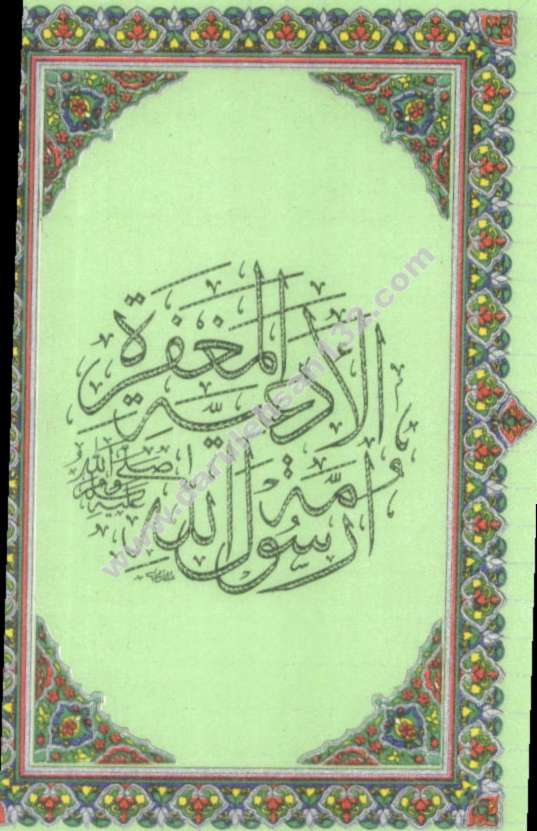 الأدعية المغفرة
لأمة رسول الله
صلى الله عليه وسلم
www.darulehsan132.com